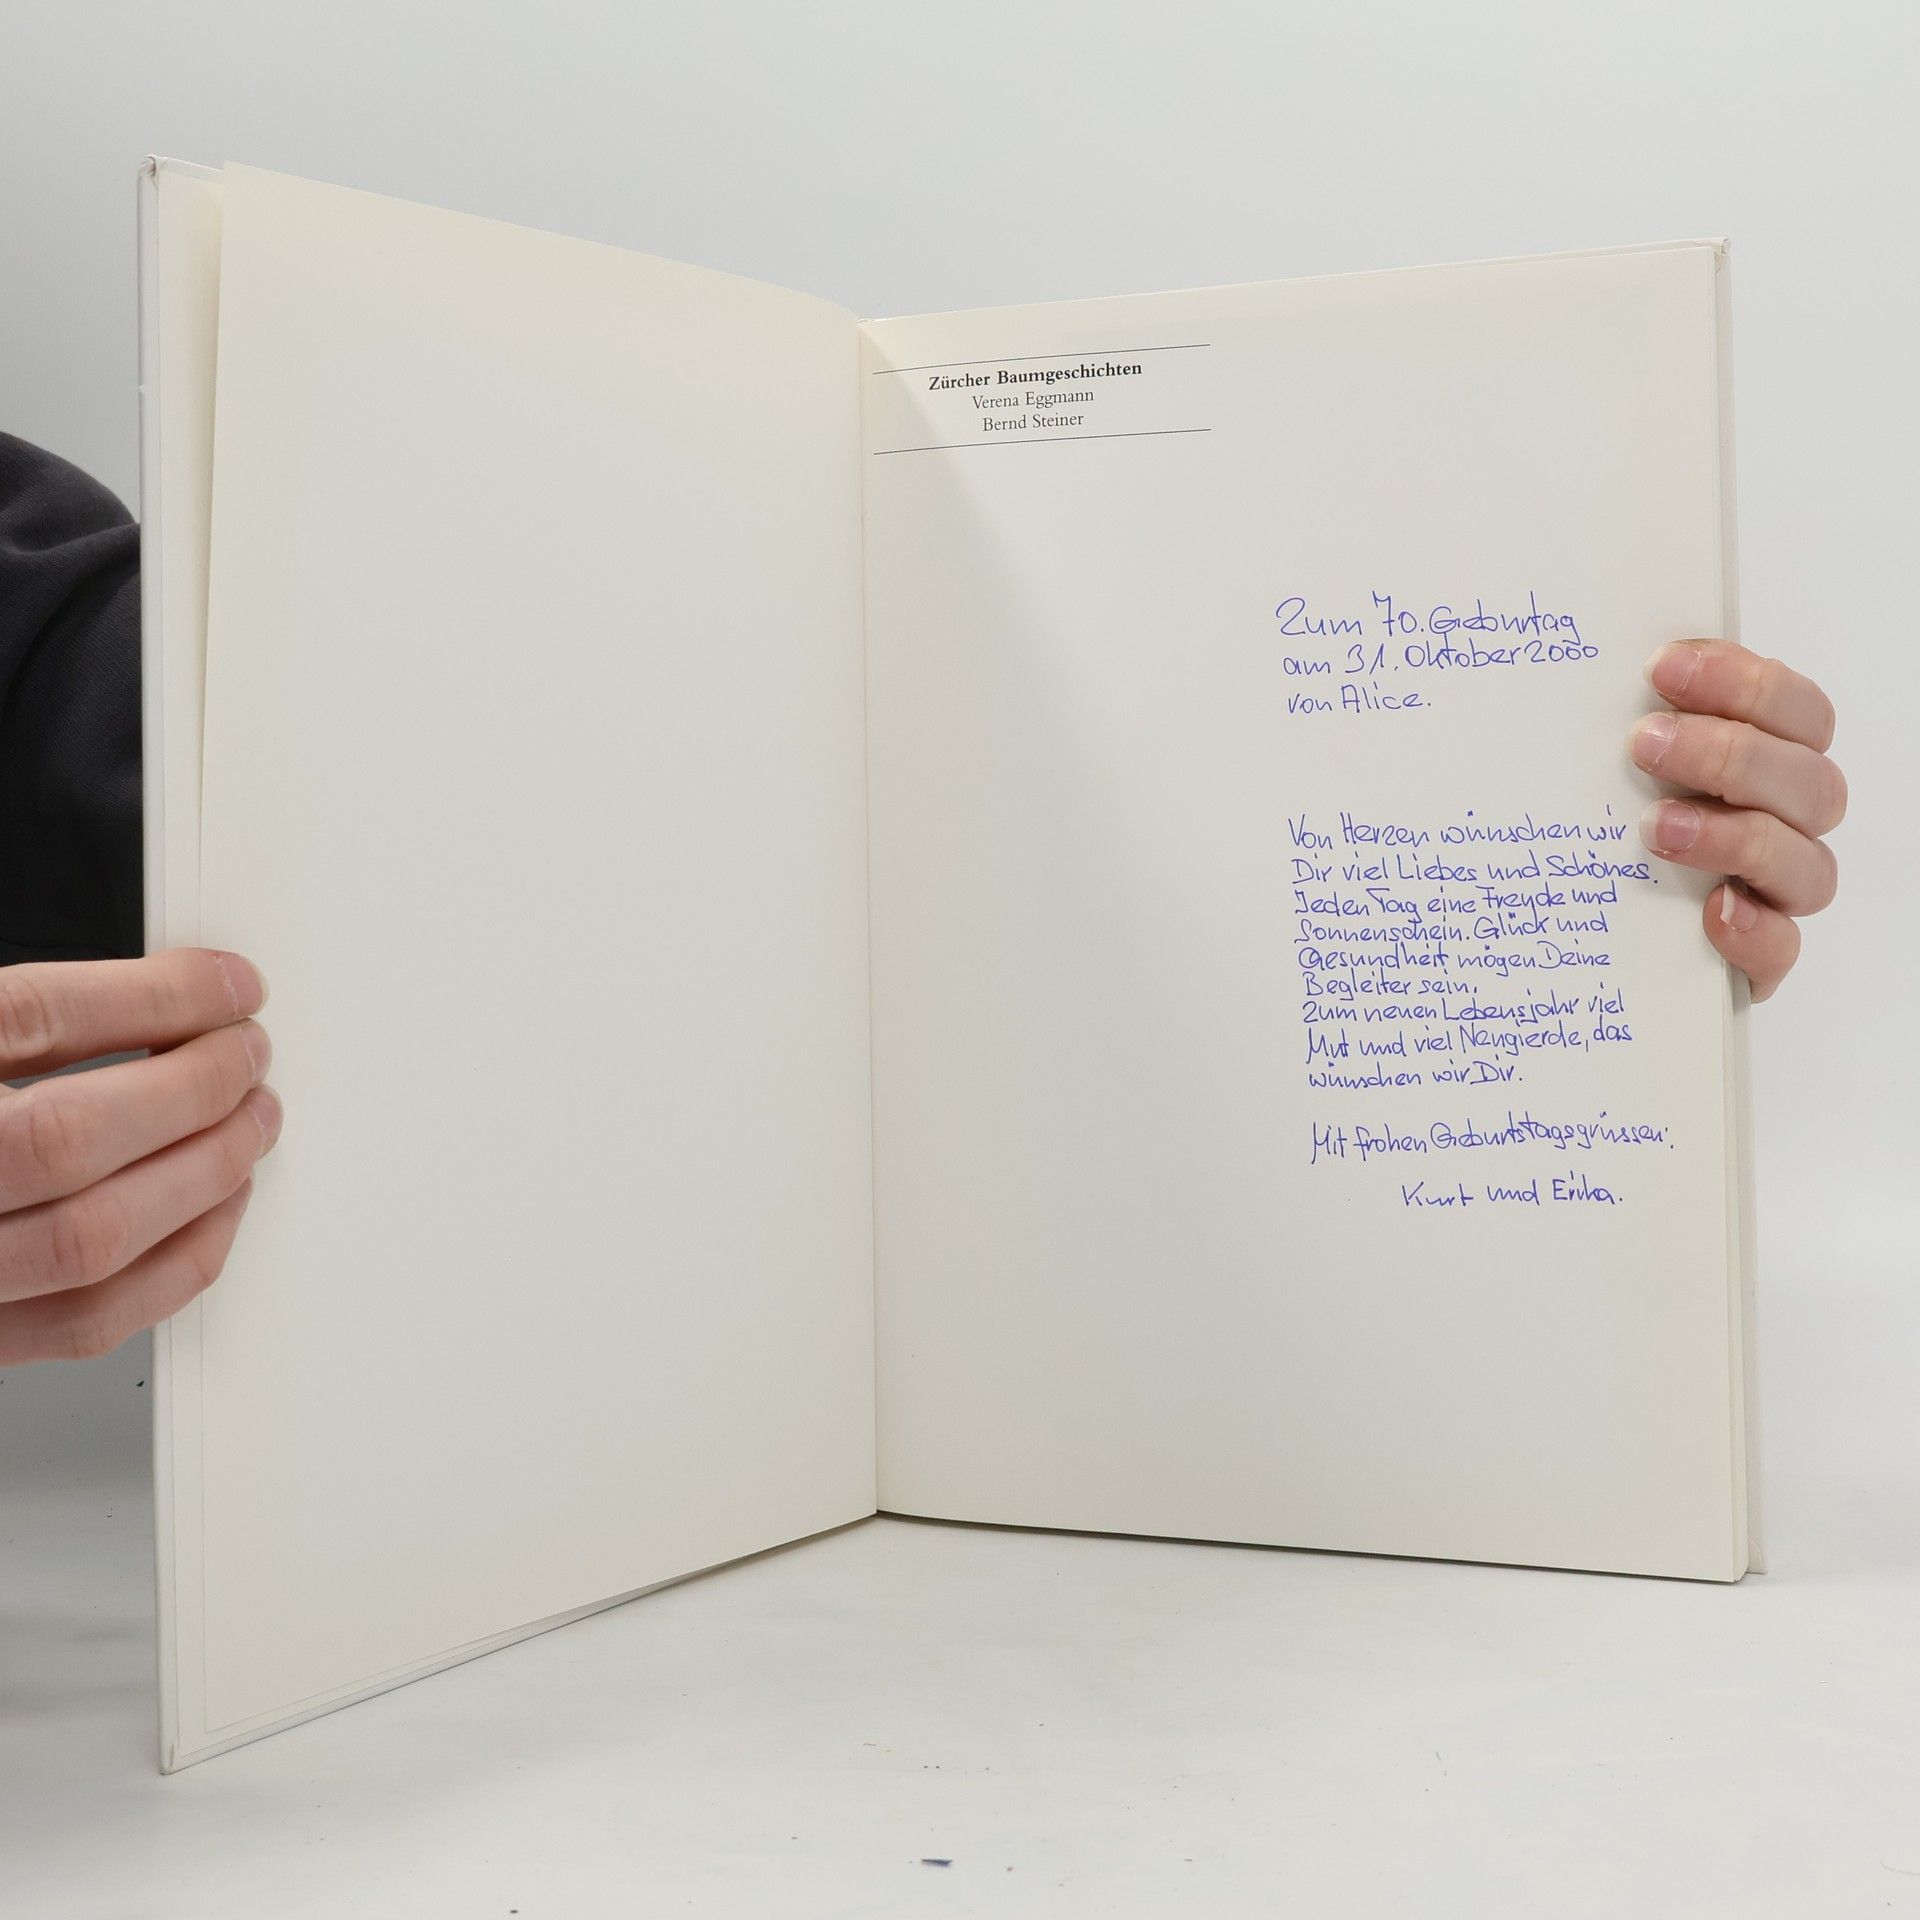 Zürcher Baumgeschichten
Verena Eggmann
Bernd Steiner
Zum 70. Geburtag
am 31. Oktober 2000
von Alice.
Von Herzen wünschen wir
Dir viel Liebes und Schönes.
Jeden Tag eine Freude und
Sonnenschein. Glück und
Gesundheit mögen Deine
Begleiter sein.
Zum neuen Lebensjahr viel
Mut und viel Neugierde, das
wünschen wir Dir.
Mit frohen Geburtstagsgrüssen:
Kurt und Erika.